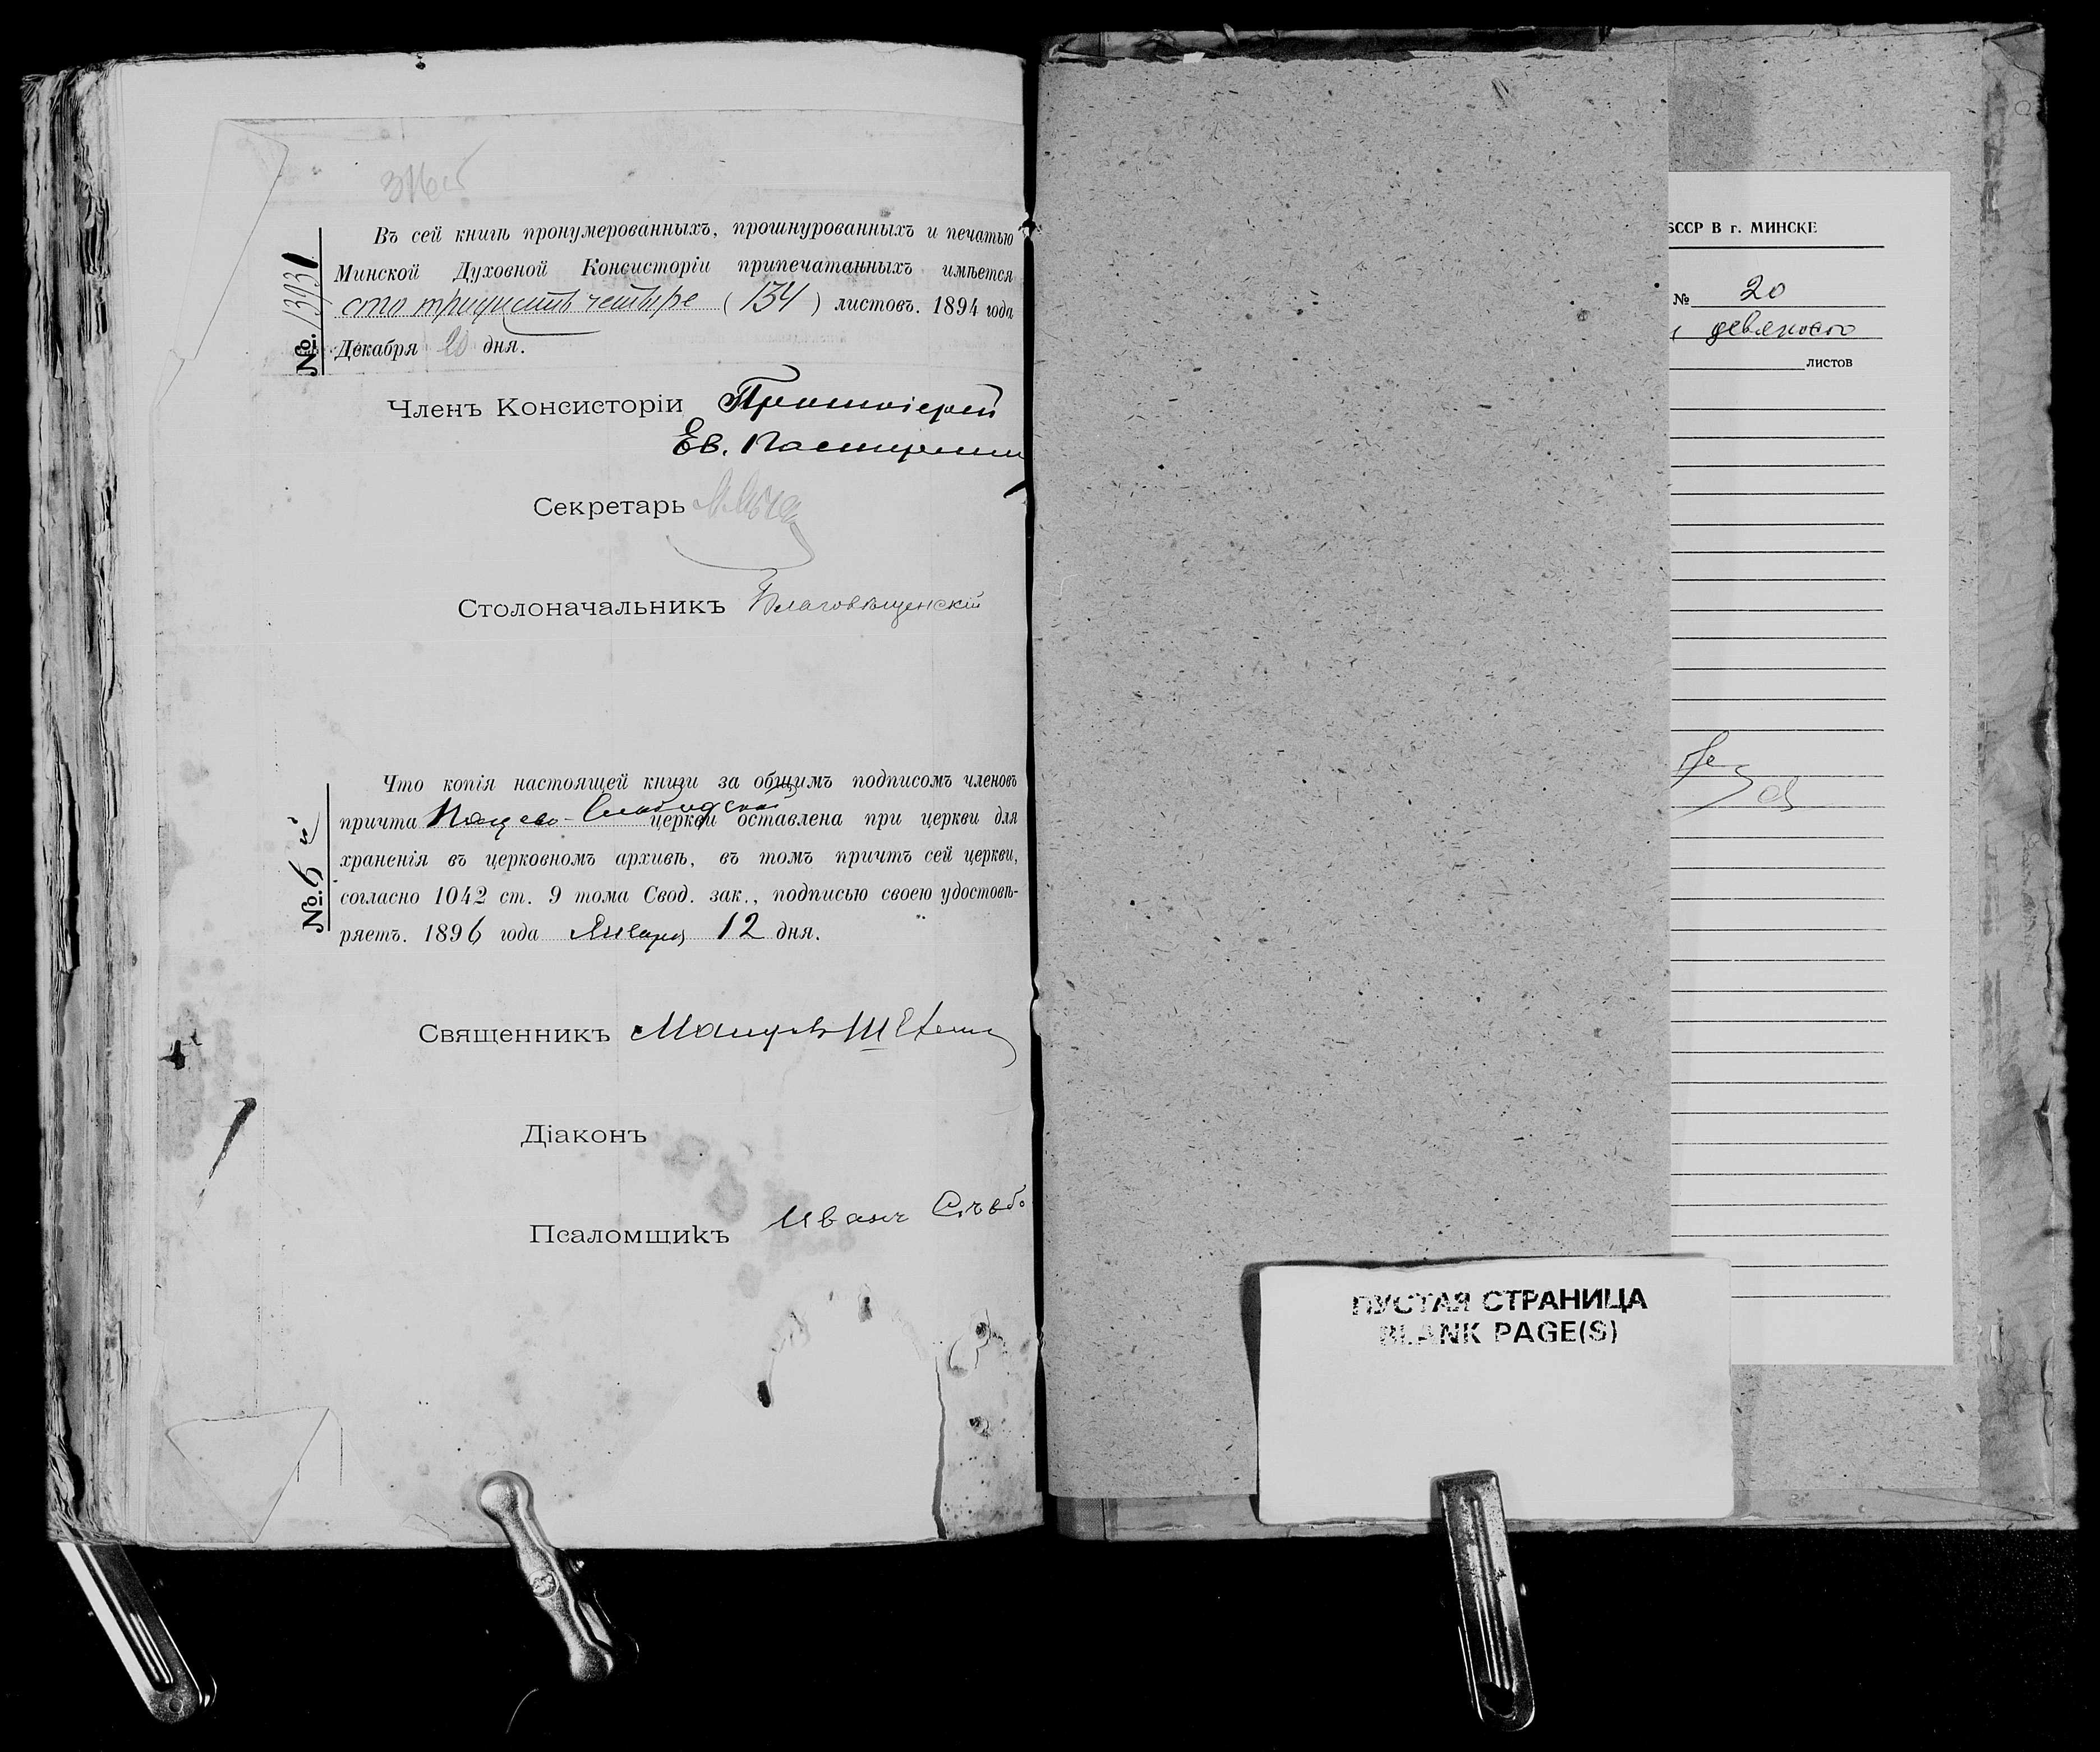 Въ сей книгѣ пронумерованныхъ, прошнурованныхъ и печатью
Минской Духовной Консисторіи припечатанныхъ имѣется
сто тридцать четыре (134) листовъ. 1894 года
Декабря 20 дня.
№
Членъ Консисторіи Протоіерей
Ев.
Секретарь
Столоначальникъ Благовѣщенскій
Что копія настоящей книги за общимъ подписомъ членовъ
причта церкви оставлена при церкви для
храненія въ церковномъ архивѣ, въ томъ причтъ сей церкви,
согласно 1042 ст. 9 тома Свод. зак., подписью своею удостовѣ-
ряетъ. 1896 года Января 12 дня.
№ 6
Священникъ
Діаконъ
Псаломщикъ Иванъ
БССР В г. МИНСКЕ
№ 20
девяносто
листов
ПУСТАЯ СТРАНИЦА
BLANK PAGE(S)